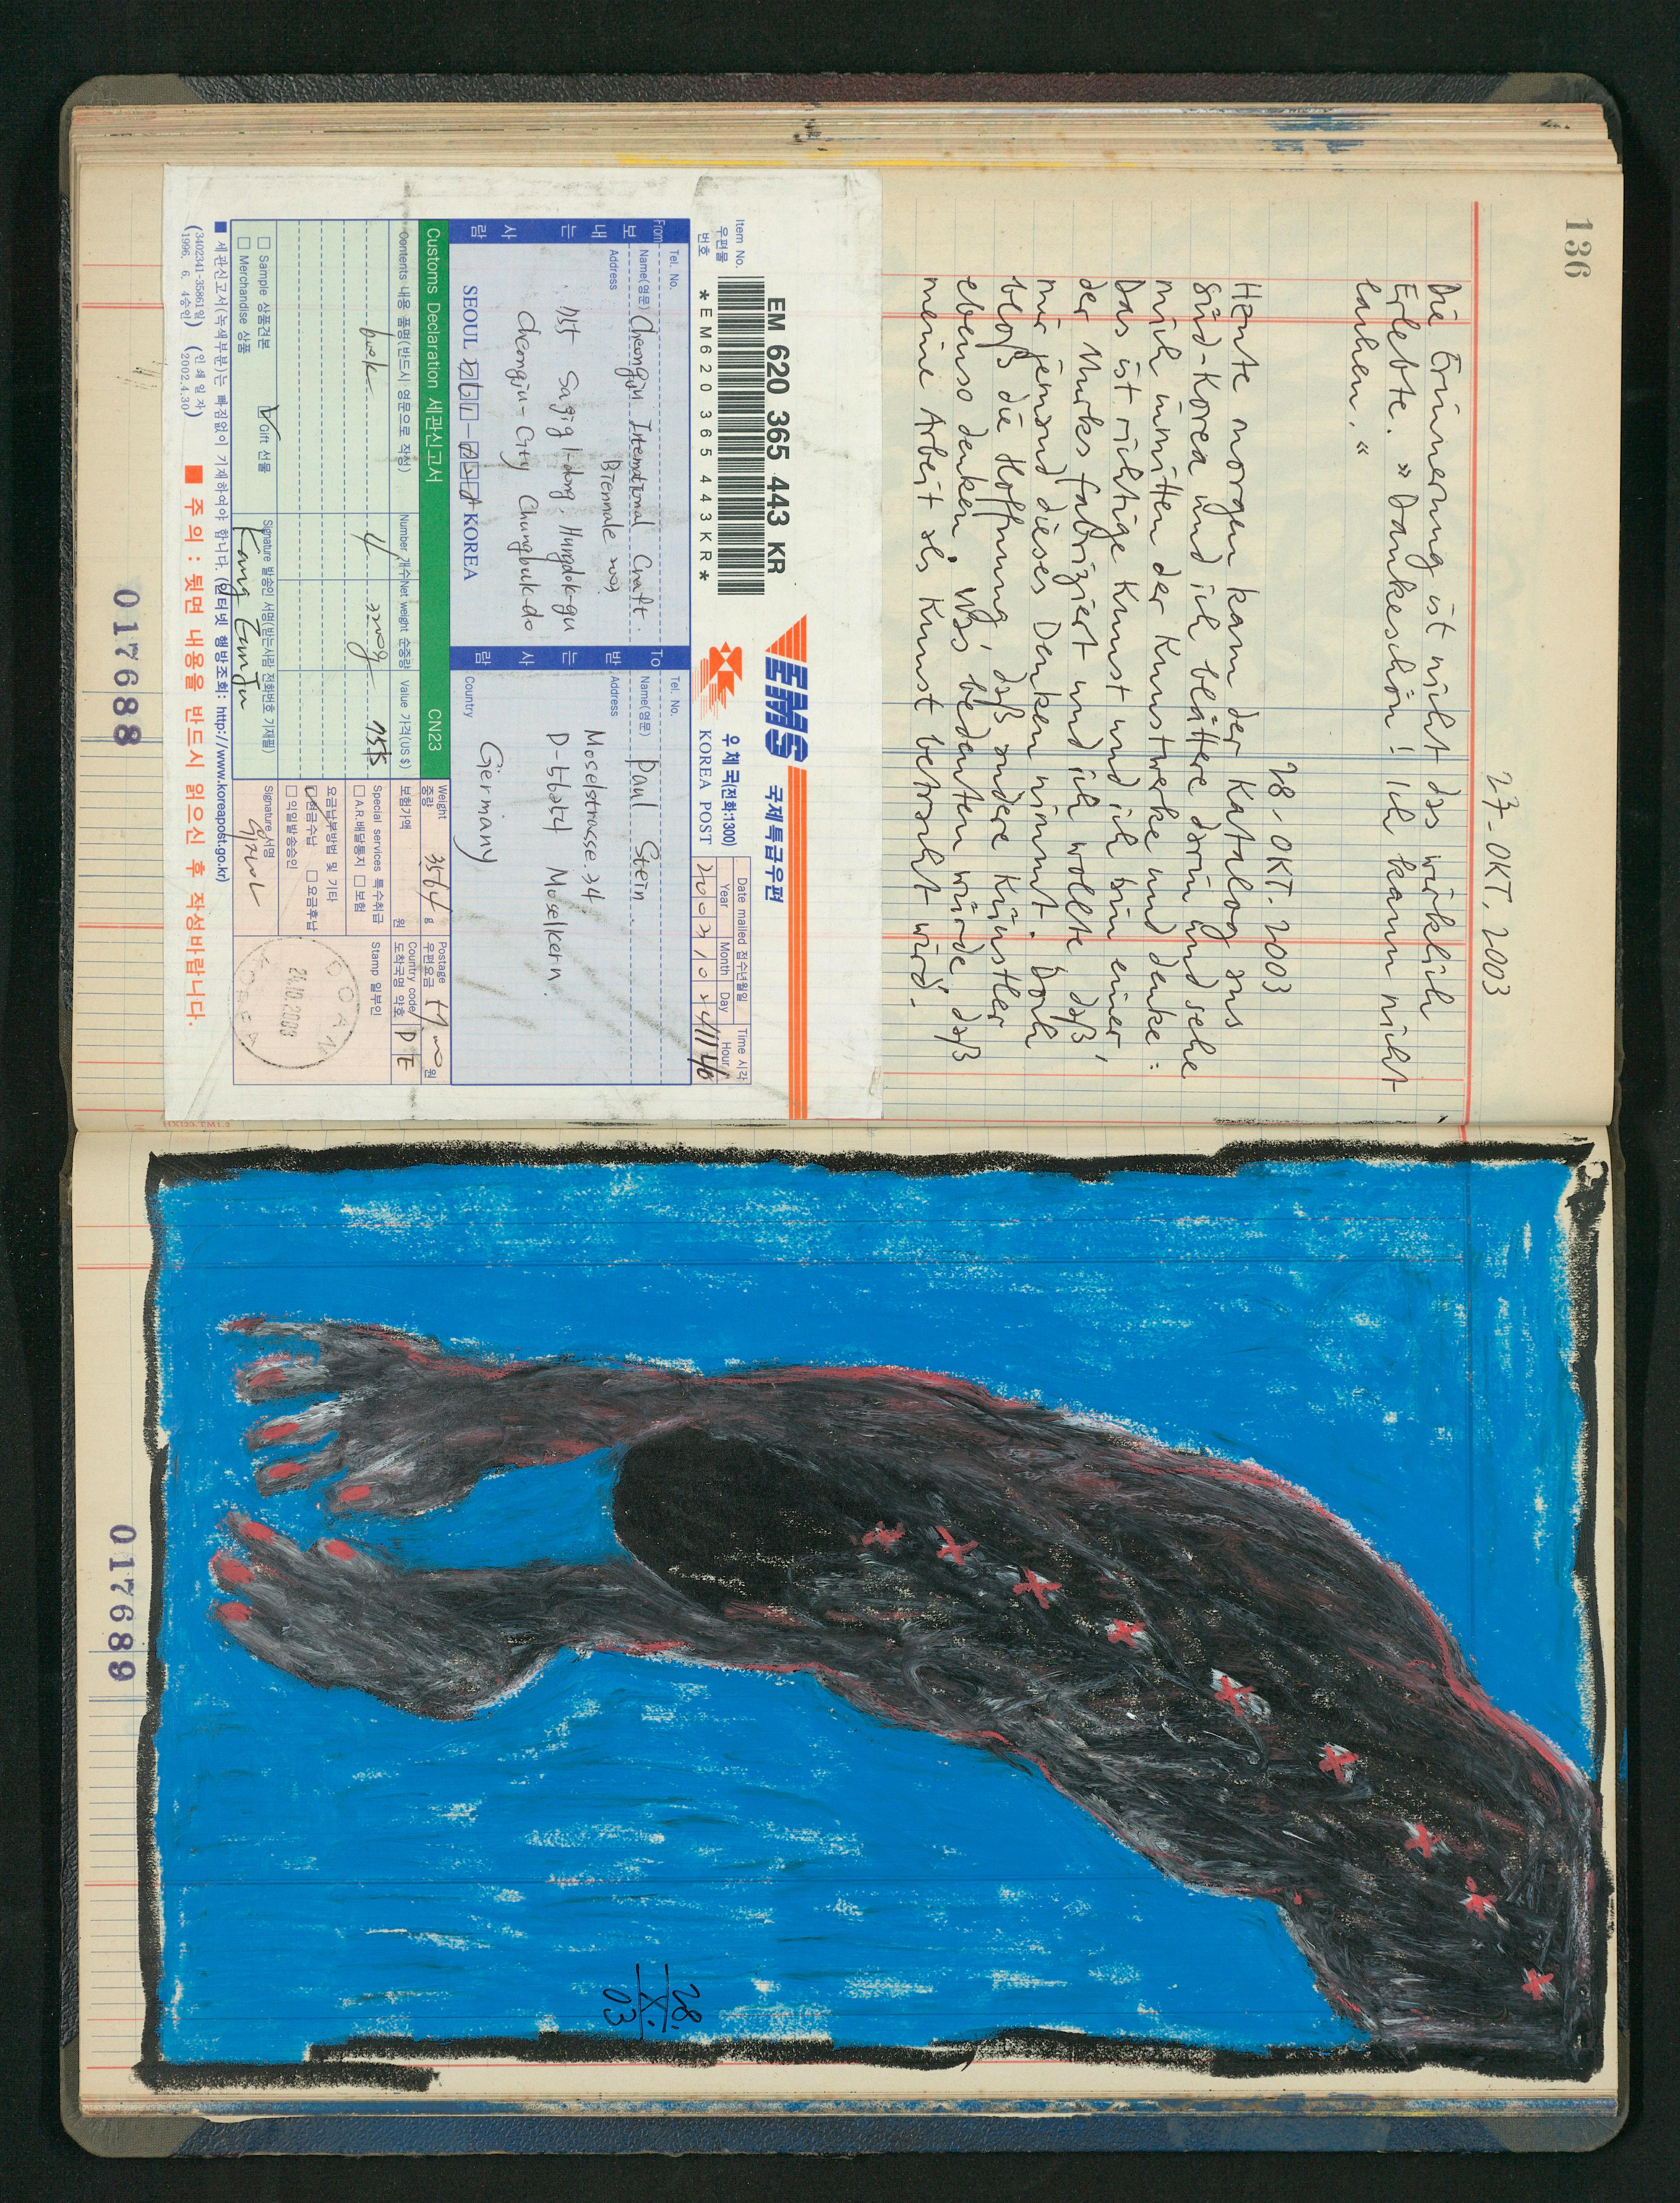 136
27-OKT. 2003
Die Erinnerung ist nicht das wirklich
Erlebte. » Dankeschön! Ich kann nicht
lauhen. «
28-OKT. 2003
Heute morgen kam der Katalog aus
Süd-Korea und ich blättere darin und sehe
mich inmitten der Kunstwerke und denke:
Das ist richtige Kunst und ich bin einer
der Murks fabriziert und ich wollte daß
mir jemand dieses Denken nimmt. Doch
bloß die Hoffnung, daß andere Künstler
ebenso denken, was bedeuten würde, daß
meine Arbeit als Kunst betracht wird.
EMS 국제특급우편
EM 620 365 443 KR
Item No.
우편물
번호
*EM620365443KR*
우체국(전화:1300)
KOREA POST
Date mailed 접수년월일
Time 시각
Year Month Day Hour
2003 10 24 11 40
From Tel. No.
보내는 사람
Name(영문) Cheongju International Craft
Biennale 2003
Address
755 Sajig 1-dong. Hungdok-gu
Cheongju-City Chungbuk-do
SEOUL KOREA
To Tel. No.
받는 사람
Name(영문) Paul Stein
Address
Moselstrasse. 34.
D-56254 Moselkern.
Country
Germany
Customs Declaration 세관신고서 CN23
Contents 내용 품명(반드시 영문으로 작성)
Number 개수
Net weight 순중량
Value 가격(US $)
book 4 75$
Weight
중량
3564 g
Postage
우편요금
원
보험가액
원
Country code
도착국명 약호
DE
Special services 특수취급
□ A.R.배달통지 □ 보험
요금납부방법 및 기타
현금수납 □ 요금후납
□ 익일발송승인
Stamp 일부인
24.10.2003
KOREA
□ Sample 상품견본
Gift 선물
□ Merchandise 상품
Signature 발송인 서명(받는사람 전화번호 기재필)
Signature 서명
■ 세관신고서(녹색부분)는 빠짐없이 기재하여야 합니다. (인터넷 행방조회: http://www.koreapost.go.kr)
(3402341-35861일) (인 쇄 일 자)
(1996. 6. 4승인) (2002.4.30)
■ 주 의 : 뒷면 내용을 반드시 읽으신 후 작성바랍니다.
017688
28.
X.
03
017689